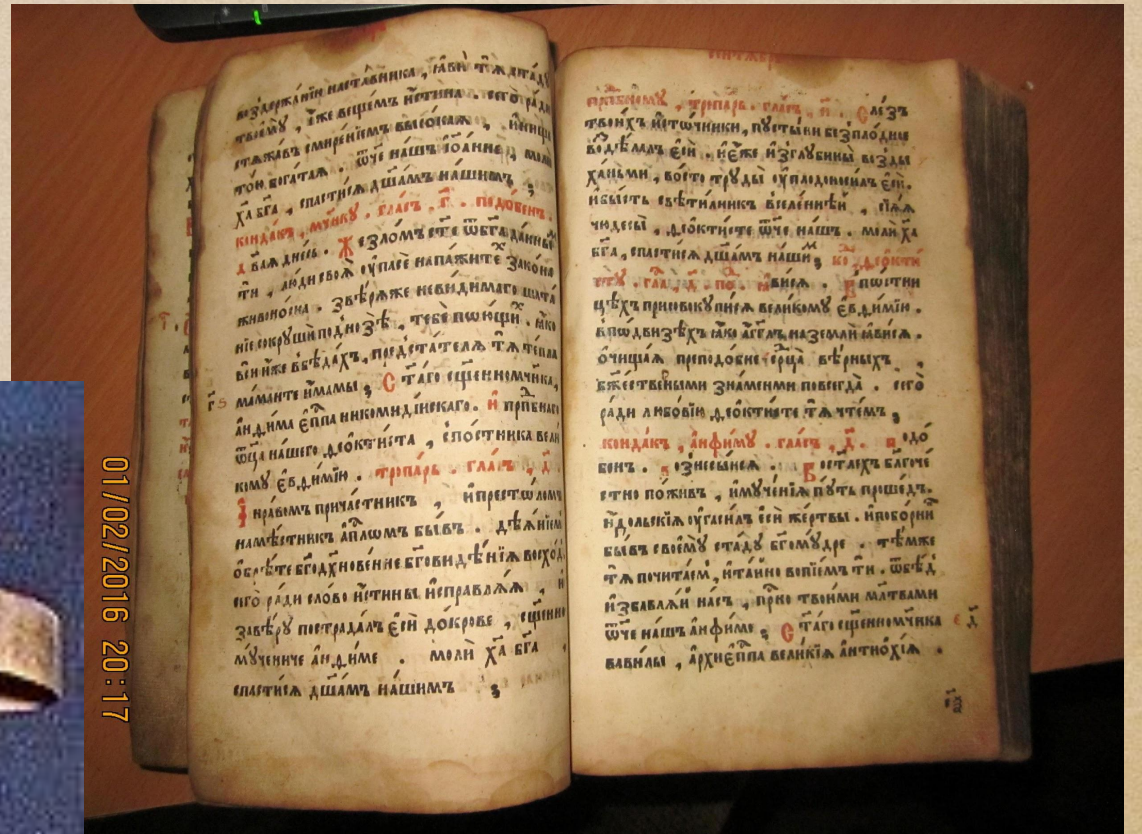 воздержанїю наставника , ꙗви тѧ стад꙽
твоемꙋ̀ , ꙗже вещемъ и҆стина . сегѡ̀ ра́ди
стѧжавъ смиренїемъ высокаѧ , и҆нище
тою богатаѧ . ѿч҃е нашъ і҆оанне , моли
хⷭ҇а бг҃а , спастисѧ дш҃амъ на́шимъ ;
конда́къ , мч҃нкꙋ . гла́съ . г҃ . подо́бенъ .
д҃ваѧ дне́сь . Же́зломъ ѿ бг҃а данныⷨ
ти , люди своѧ̀ ᲂу҆пасе на пажитеⷯ зако́на
живоно́сна . ѕвѣ́рѧже невидимаго шата
нїе сокрꙋши под но́зѣ , тебе пою́щиⷯ . ꙗ҆́ко
вси и҆́же в бѣда́хъ , предста́телѧ тѧ те́пла
мама́нте и҆́мамы ; Ст҃а́го сщ҃енномч҃ника ,
г҃ анѳи́ма є҆пⷭ҇па никомиді́искаго . и҆ прпⷣбнаго
ѻ҆ц҃а̀ нашего ѳео́ктиста , спо́стника вели
комꙋ є҆вѳи́мїю . тропа́рь . гла́съ , д҃ .
І҆ нра́вомъ прича́стникъ , и҆ престо́ломъ
намѣ́стникъ а҆пⷭ҇ломъ бы́въ . дѣѧ́нїемъ
ѻ҆брѣ́те бг҃одх҃новенне бг҃овидѣ́нїѧ восхоⷣ .
сегѡ̀ ра́ди сло́во и҆́стины и҆справлѧ́ѧ , и҆
за вѣ́рꙋ пострада́лъ є҆сѝ до кро́ве , сщ҃енно
мꙋ́чениче анѳи́ме . молѝ хⷭ҇а̀ бг҃а
спасти́сѧ дш҃а́мъ на́шимъ ;
сентѧбрь
прпⷣбномꙋ , тропа́рь . гла́съ , и҃ . Сле́зъ
твои́хъ и҆сто́чники , пꙋсты́ни безпло́дные
воздѣ́лалъ є҆сѝ . и҆ є҆́же и҆зглꙋбины̀ возды
ха́ньми , во сто трꙋды̀ ᲂу҆плодоноси́лъ є҆сѝ .
и҆ бы́сть свѣти́лникъ вселе́ннѣй , сїѧ́ѧ
чюдесы̀ , ѳео́ктисте ѿч҃е нашъ . молѝ хⷭ҇а
бг҃а , спасти́сѧ дш҃а́мъ на́шиⷨ ; коⷣ , ѳео́кти
стꙋ . глаⷭ , д҃ . поⷣ . ꙗви́сѧ . В пꙋсты́н
цѣхъ присовокꙋпи́сѧ вели́комꙋ є҆вѳи́мїю .
в по́двизѣхъ ꙗ҆́ко а҆́гг҃лъ на землѝ ꙗви́сѧ .
ѻ҆чища́ѧ преподо́бне срⷣца̀ вѣ́рныхъ ,
бжⷭ҇твеными зна́менми повсегда̀ . сегѡ̀
ра́ди любо́вїю ѳео́ктисте тѧ̀ чте́мъ ;
конда́къ , а҆нѳи́мꙋ . гла́съ , д҃ . подо́
бенъ . вознесы́исѧ . В остаⷯхъ благоче́
стно пожи́въ , и҆ мꙋче́нїѧ пꙋ́ть проше́дъ .
и҆́дольскїѧ ᲂу҆гаси́лъ є҆сѝ же́ртвы . и҆ побо́рниⷦ
бы́въ своемꙋ̀ ста́дꙋ бг҃омꙋ́дре . тѣ́мже
тѧ̀ почита́емⷨ , и҆ та́йно вопїе́мъ ти . ѿбѣⷣ
и҆збавлѧ́й на́съ , прⷭ҇но твои́ми мл҃твами
ѿч҃е нашъ а҆нѳи́ме ; Ст҃а́го сщ҃енномч҃ника д҃
вави́лы , а҆рхиє҆пⷭ҇па вели́кїѧ а҆нтїохі́ѧ .
01/02/2016 20:17